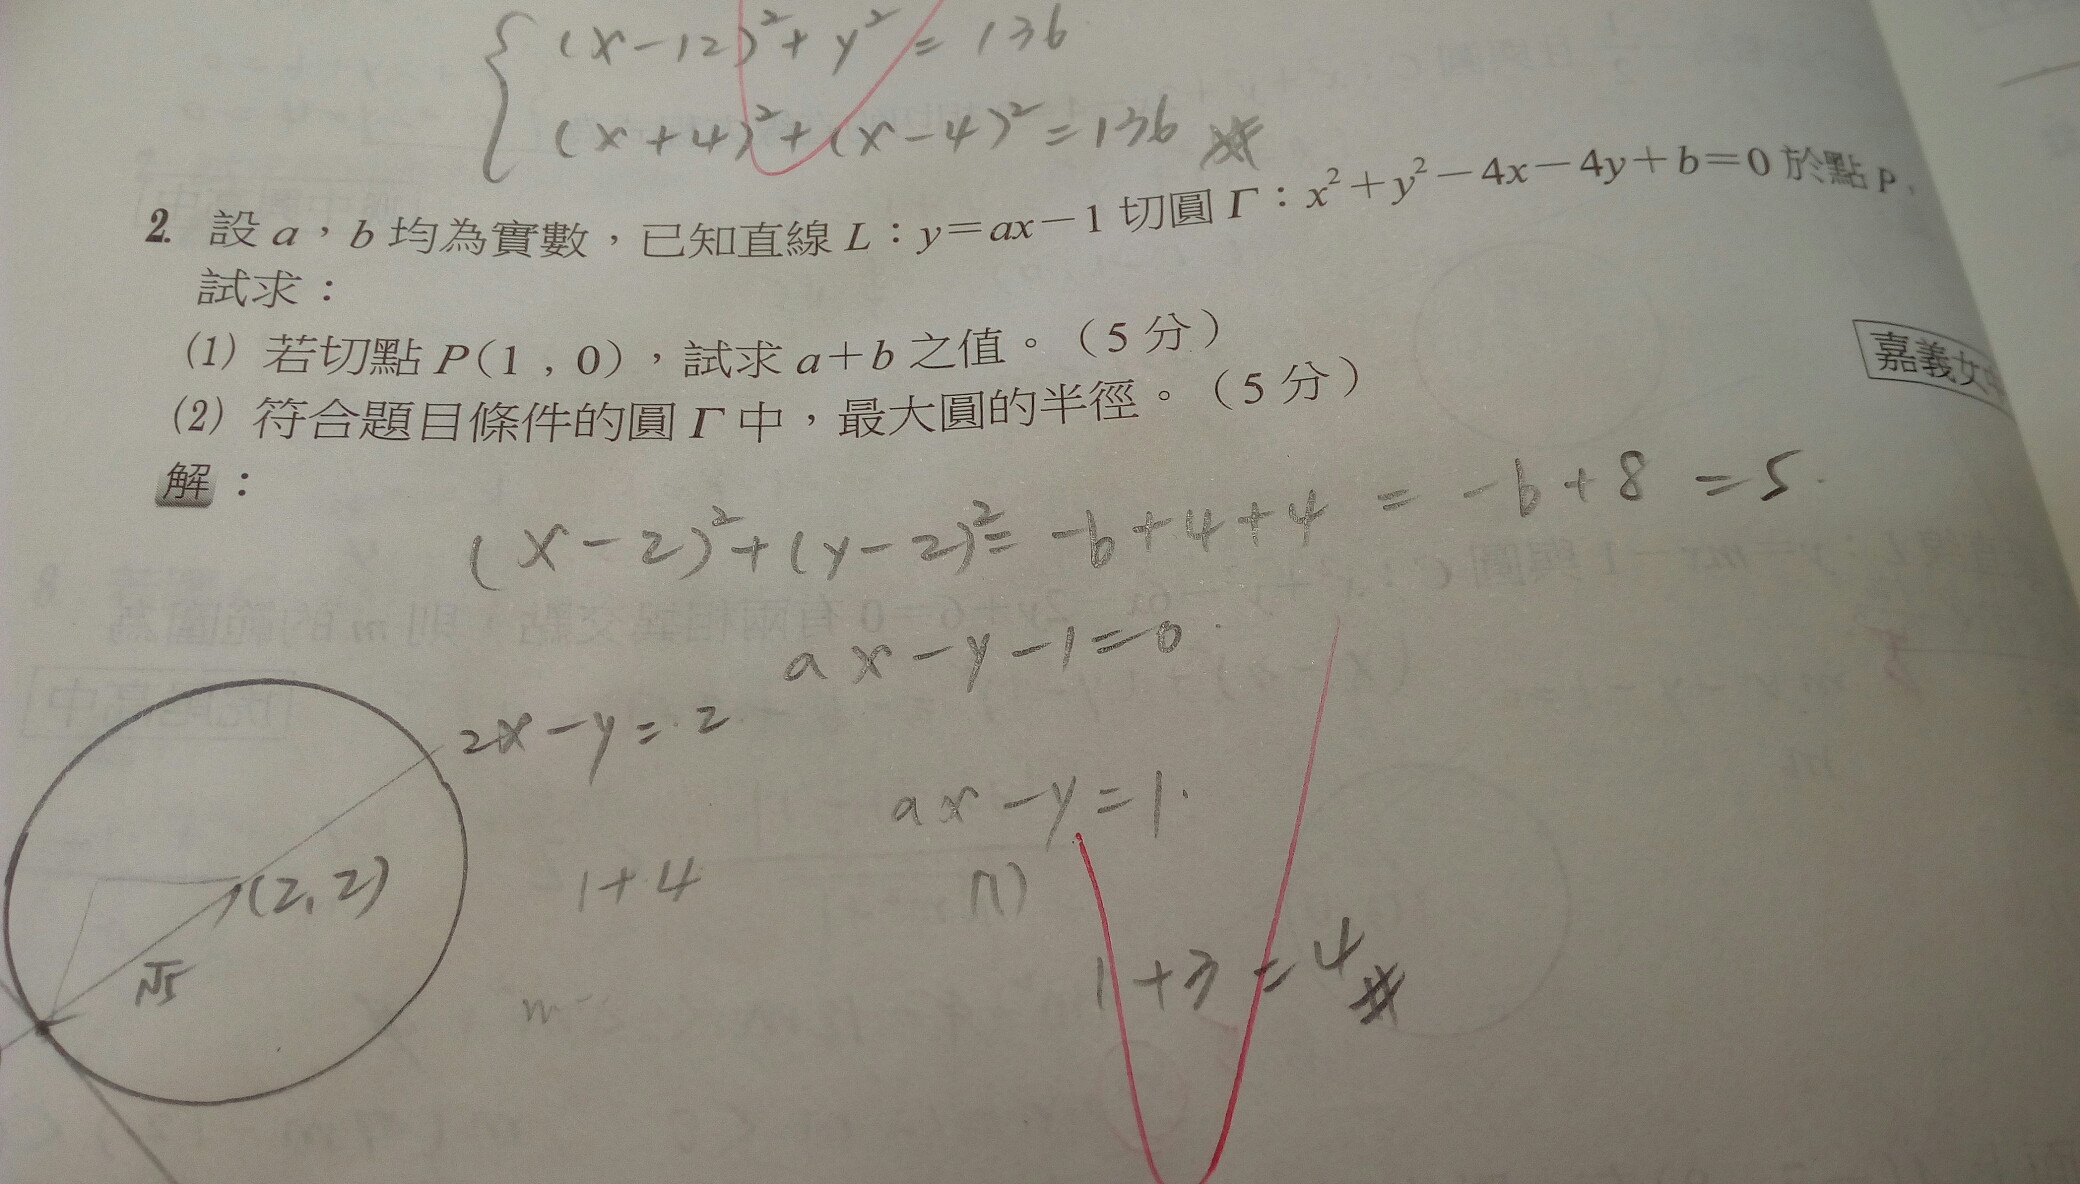 (x-12)²+y²=136
(x+4)²+(x-4)²=136
2. 設 a，b 均為實數，已知直線 L：y=ax-1 切圓 Γ：x²+y²-4x-4y+b=0 於點 P，
試求：
(1) 若切點 P(1，0)，試求 a+b 之值。（5 分）
(2) 符合題目條件的圓 Γ 中，最大圓的半徑。（5 分）
嘉義女
解：
(x-2)²+(y-2)²=-b+4+4=-b+8=5.
ax-y-1=0.
2x-y=2
ax-y=1.
(2,2)
1+4
(1)
√5
1+3=4